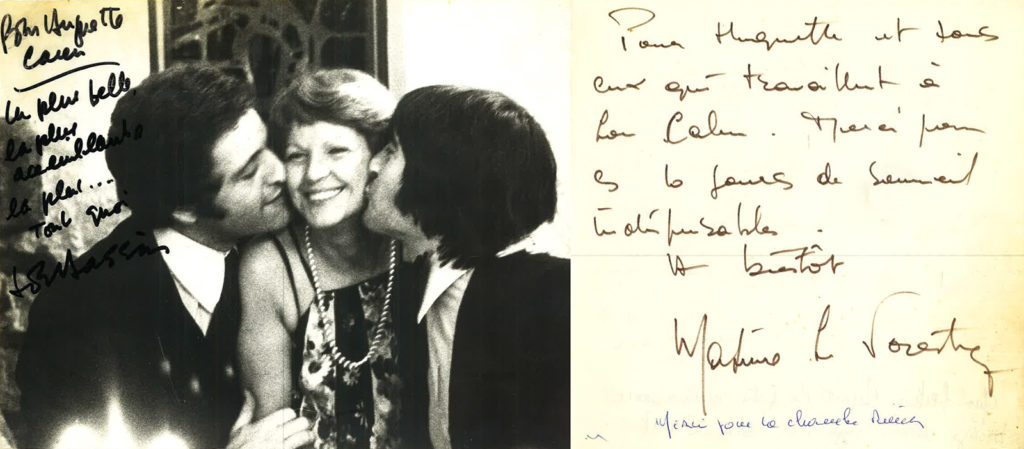 Pour Huguette
Caren
La plus belle,
la plus
accueillante
la plus....
Tout quoi.
Pour Huguette et tous
ceux qui travaillent à
Lou Calen. Merci pour
ces 10 jours de sommeil
indispensables.
A bientôt
Maxime Le Forestier
Merci pour la chambre